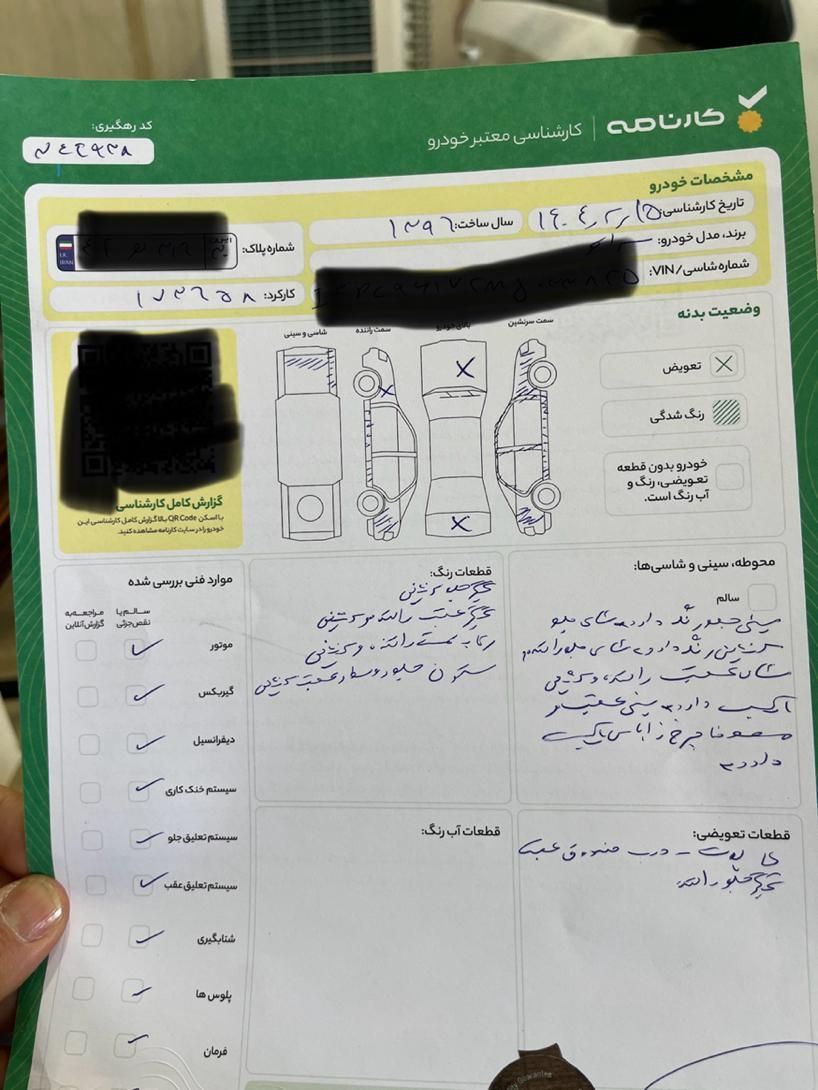 کارنامه | کارشناسی معتبر خودرو
کد رهگیری:
مشخصات خودرو
تاریخ کارشناسی: ۱۴۰۴/۲/۱۵
سال ساخت: ۱۳۹۶
شماره پلاک:
I.R. IRAN
ایران
برند، مدل خودرو:
شماره شاسی/VIN:
کارکرد: ۱۷۳۶۵۸
وضعیت بدنه
تعویض
رنگ شدگی
خودرو بدون قطعه
تعویضی، رنگ و
آب رنگ است.
سمت سرنشین
بالای خودرو
سمت راننده
شاسی و سینی
گزارش کامل کارشناسی
با اسکن QR Code بالا گزارش کامل کارشناسی این
خودرو را در سایت کارنامه مشاهده کنید.
محوطه، سینی و شاسی‌ها:
سالم
سینی جلو رنگ دارد، شاسی جلو
سرنشین رنگ دارد، شاسی جلو راننده،
شاسی عقب راننده و سرنشین
آکبند دارد، سینی عقب و
دارد
قطعات رنگ:
گلگیر جلو سرنشین
گلگیر عقب راننده و سرنشین
رکاب سمت راننده و سرنشین
ستون جلو و وسط و عقب سرنشین
قطعات تعویضی:
کاپوت - درب صندوق عقب
گلگیر جلو راننده
قطعات آب رنگ:
موارد فنی بررسی شده
سالم یا
نقص جزئی
مراجعه به
گزارش آنلاین
موتور
گیربکس
دیفرانسیل
سیستم خنک کاری
سیستم تعلیق جلو
سیستم تعلیق عقب
شتابگیری
پلوس ها
فرمان